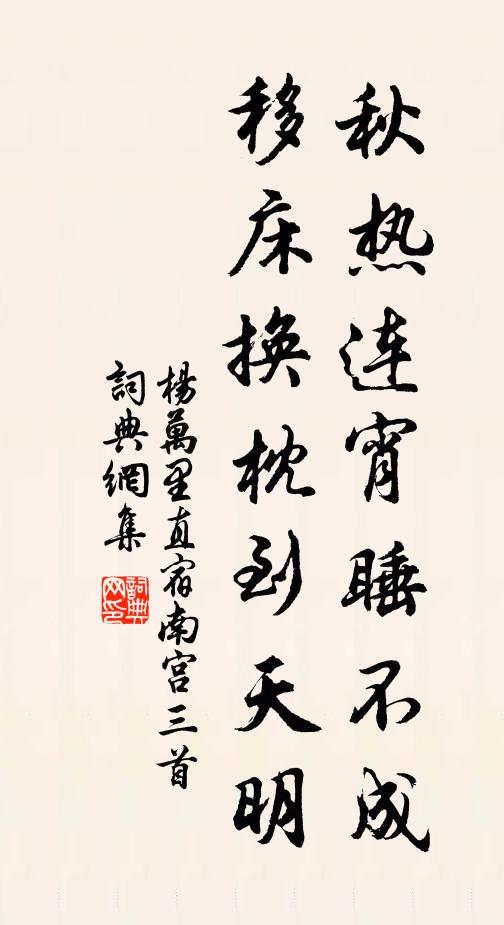 秋热连宵睡不成
移床换枕到天明
楊萬里直宿南宫三首
詞典網集
詞典網印